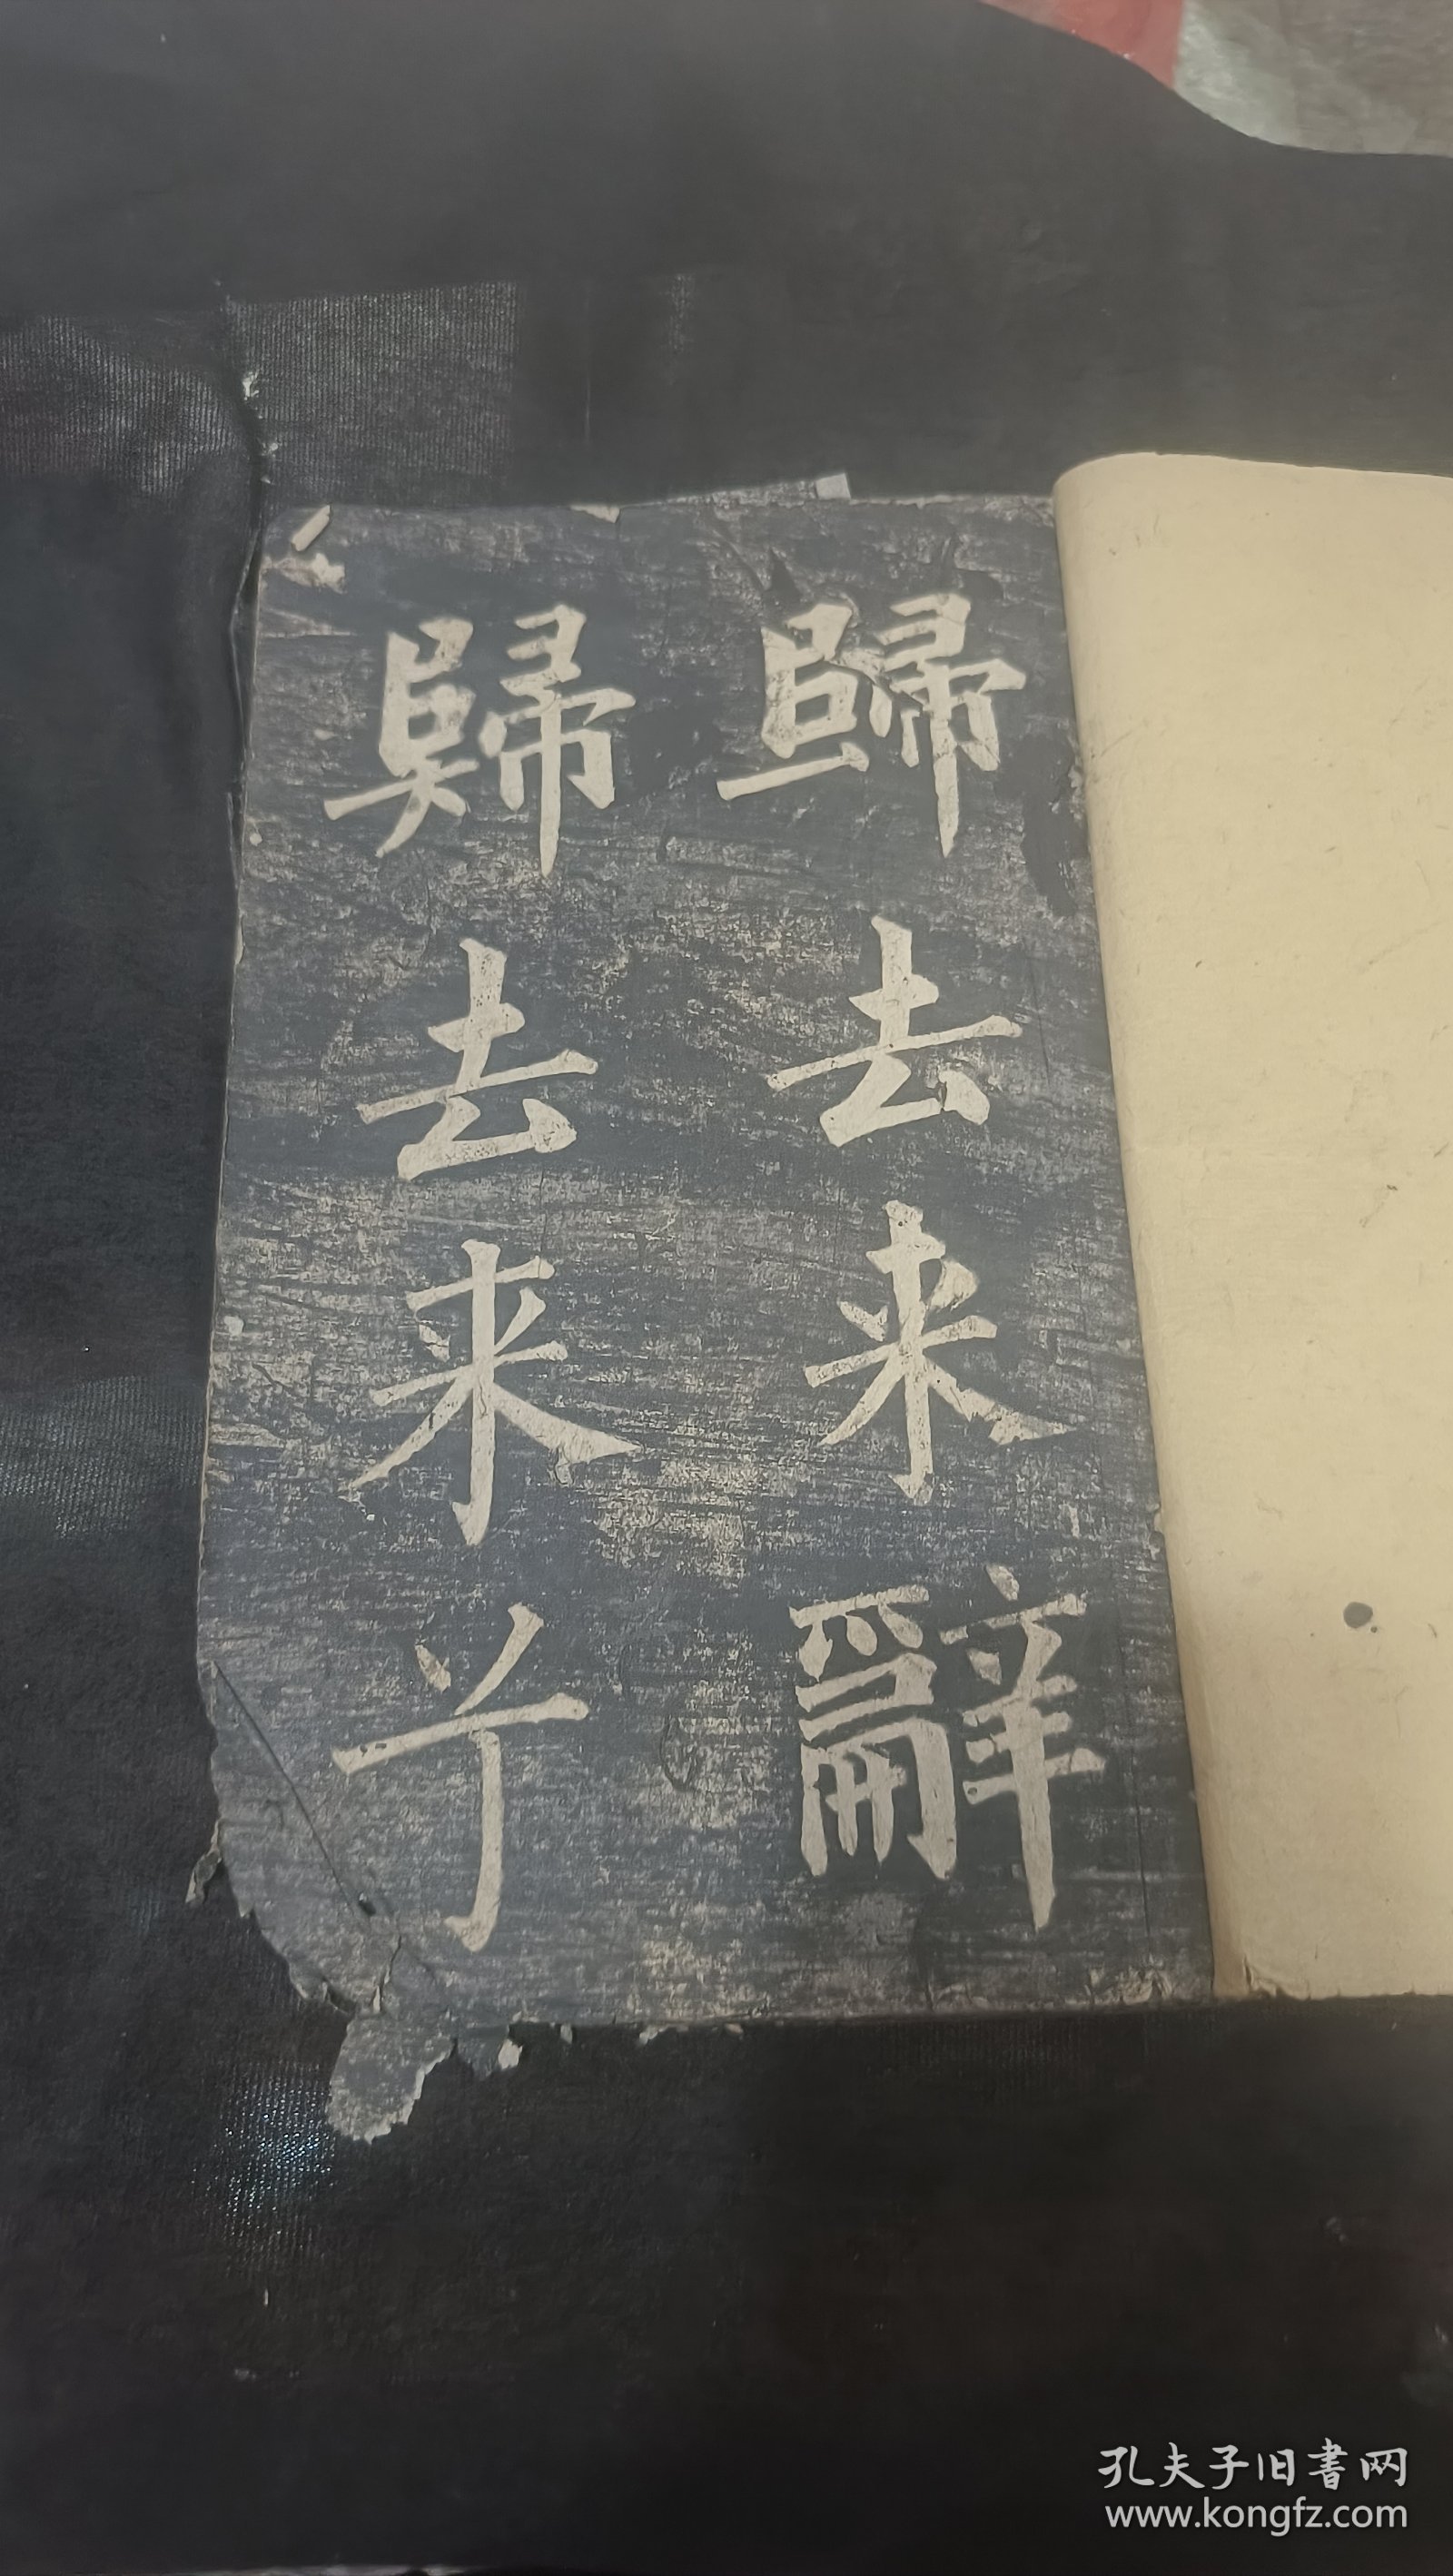 歸去来辭
歸去来兮
孔夫子旧書网
www.kongfz.com